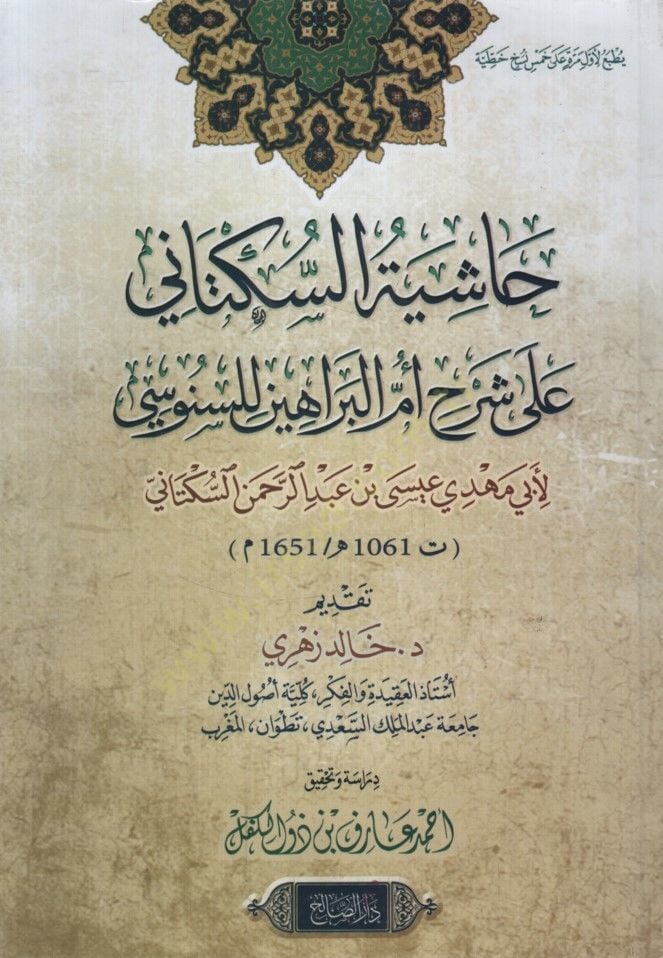 يُطبع لأوّل مرّة على خمس نسخ خطيّة
حَاشِيَةُ السُّكْتَانِي
عَلَى شَرْحِ أُمِّ البَرَاهِينِ لِلسَّنُوسِي
لِأَبِي مَهْدِي عِيسَى بْنِ عَبْدِ الرَّحْمَنِ السُّكْتَانِيّ
(ت 1061 هـ/ 1651 م)
تَقْدِيم
د. خَالِد زَهْرِي
أُسْتَاذ العَقِيدَة وَالفِكْر، كُلِّيَّة أُصُول الدِّين
جَامِعَة عَبْد المَلِك السَّعْدِي، تَطْوَان، المَغْرِب
دِرَاسَة وَتَحْقِيق
أَحْمَد عَارِف بْن ذُو الكِفْل
دَارُ الصَّالِح